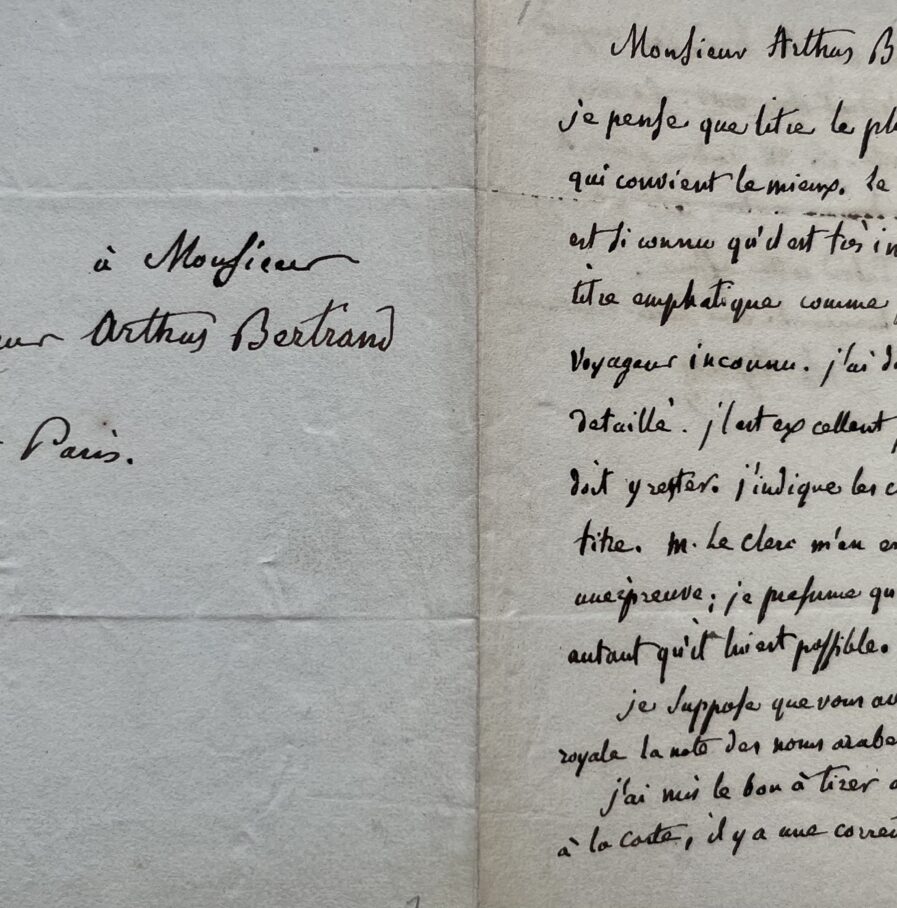 à Monsieur
Arthus Bertrand
Paris.
Monsieur Arthus B
je pense que titre le pl
qui convient le mieux. le
est si connu qu'il est très in
titre emphatique comme
voyageur inconnu. j'ai d
detaillé. jl est excellent
doit y rester. j'indique les c
titre. M. Le Clerc m'en en
une épreuve; je presume qu
autant qu'il lui est possible.
je suppose que vous av
royale la note des noms arabe
j'ai mis le bon à tirer
à la carte, il y a une correc